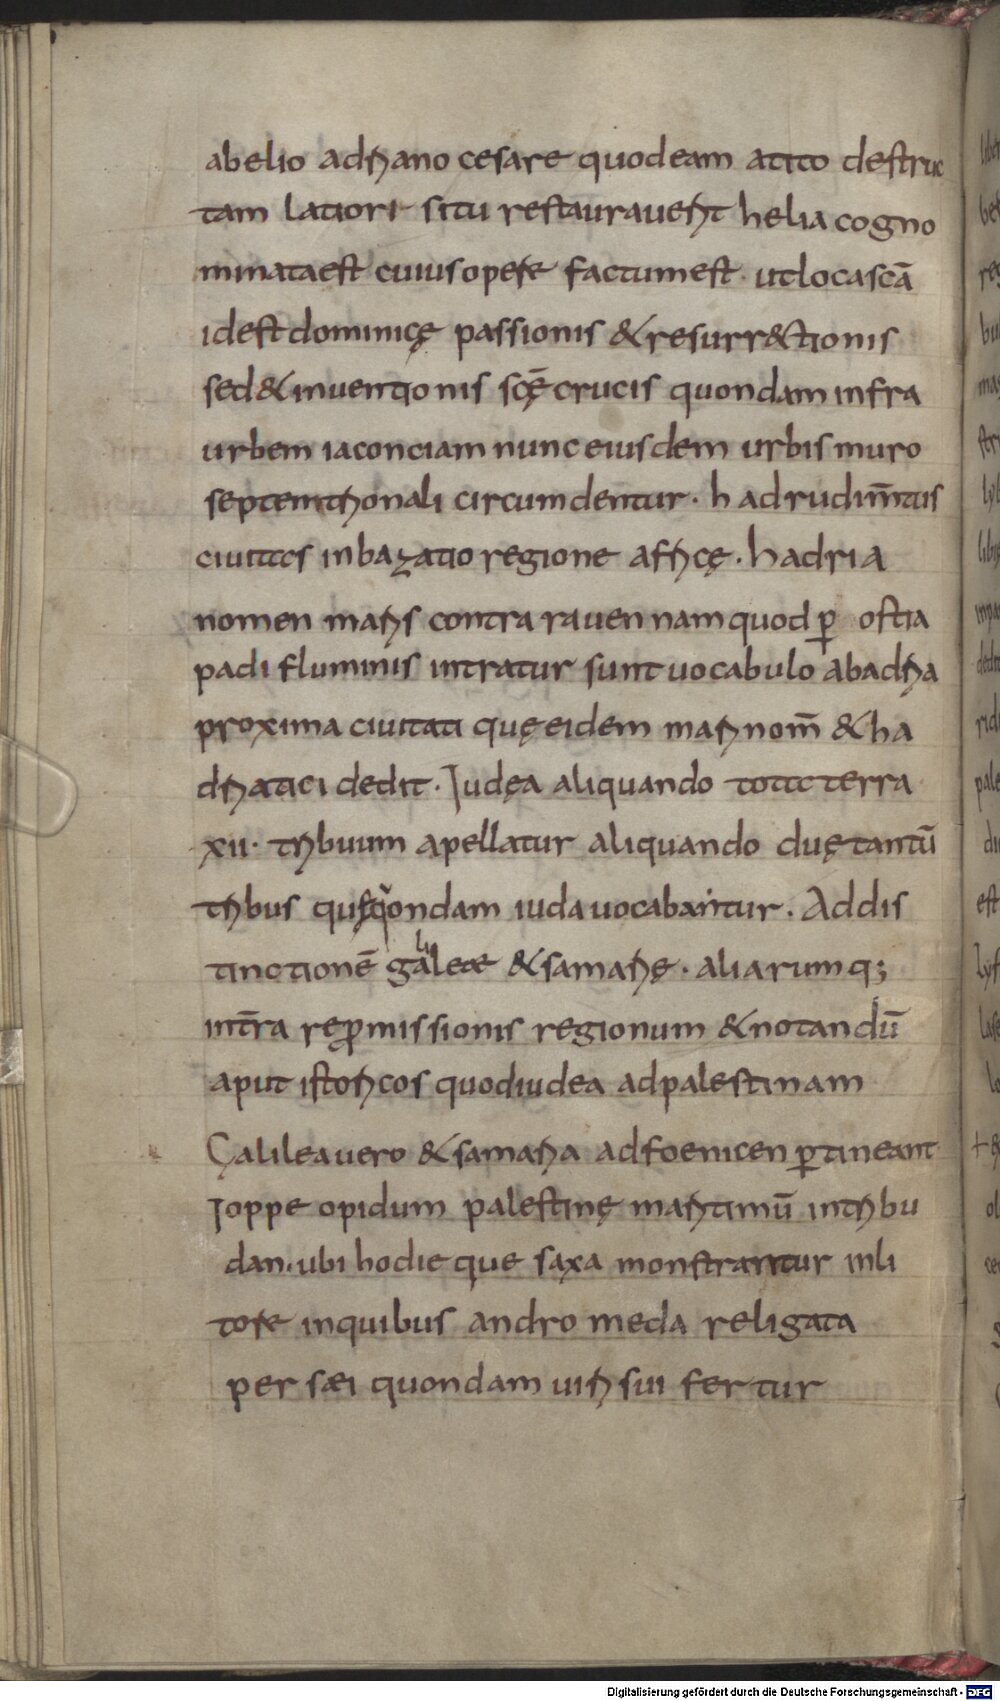 abelio adriano cesare quodeam atito destruc
tam latiori situ restauraverit helia cogno
minataest cuius opere factum est· ut loca scā
idest dominicę passionis & resurr&tionis
sed & inventionis scę̄ crucis quondam infra
urbem iaconciam nunc eiusdem urbis muro
septemtrionali circumdentur· hadrudim̄tus
civitas in bazatio regione africę· hadria
nomen maris contra ravennam quod p̄ ostia
padi fluminis intratur sunt vocabulo ab adria
proxima civitati quę eidem mari nom̄ & ha
driatici dedit· Iudęa aliquando tota terra
xii· tribuum apellatur aliquando duę tantū
tribus quę quondam iuda vocabantur· Addis
tinctionē galileae & samarię· aliarumq;
int̄ra repromissionis regionum & notandū
aput istoricos quod iudea ad palestinam
Çalilea vero & samaria ad foenicen p̄tineant
Joppe opidum palestinę maritimū in tribu
dan· ubi hodie que saxa monstrantur in li
tore in quibus andromeda religata
persæi quondam viri sui fertur
Digitalisierung gefördert durch die Deutsche Forschungsgemeinschaft - DFG